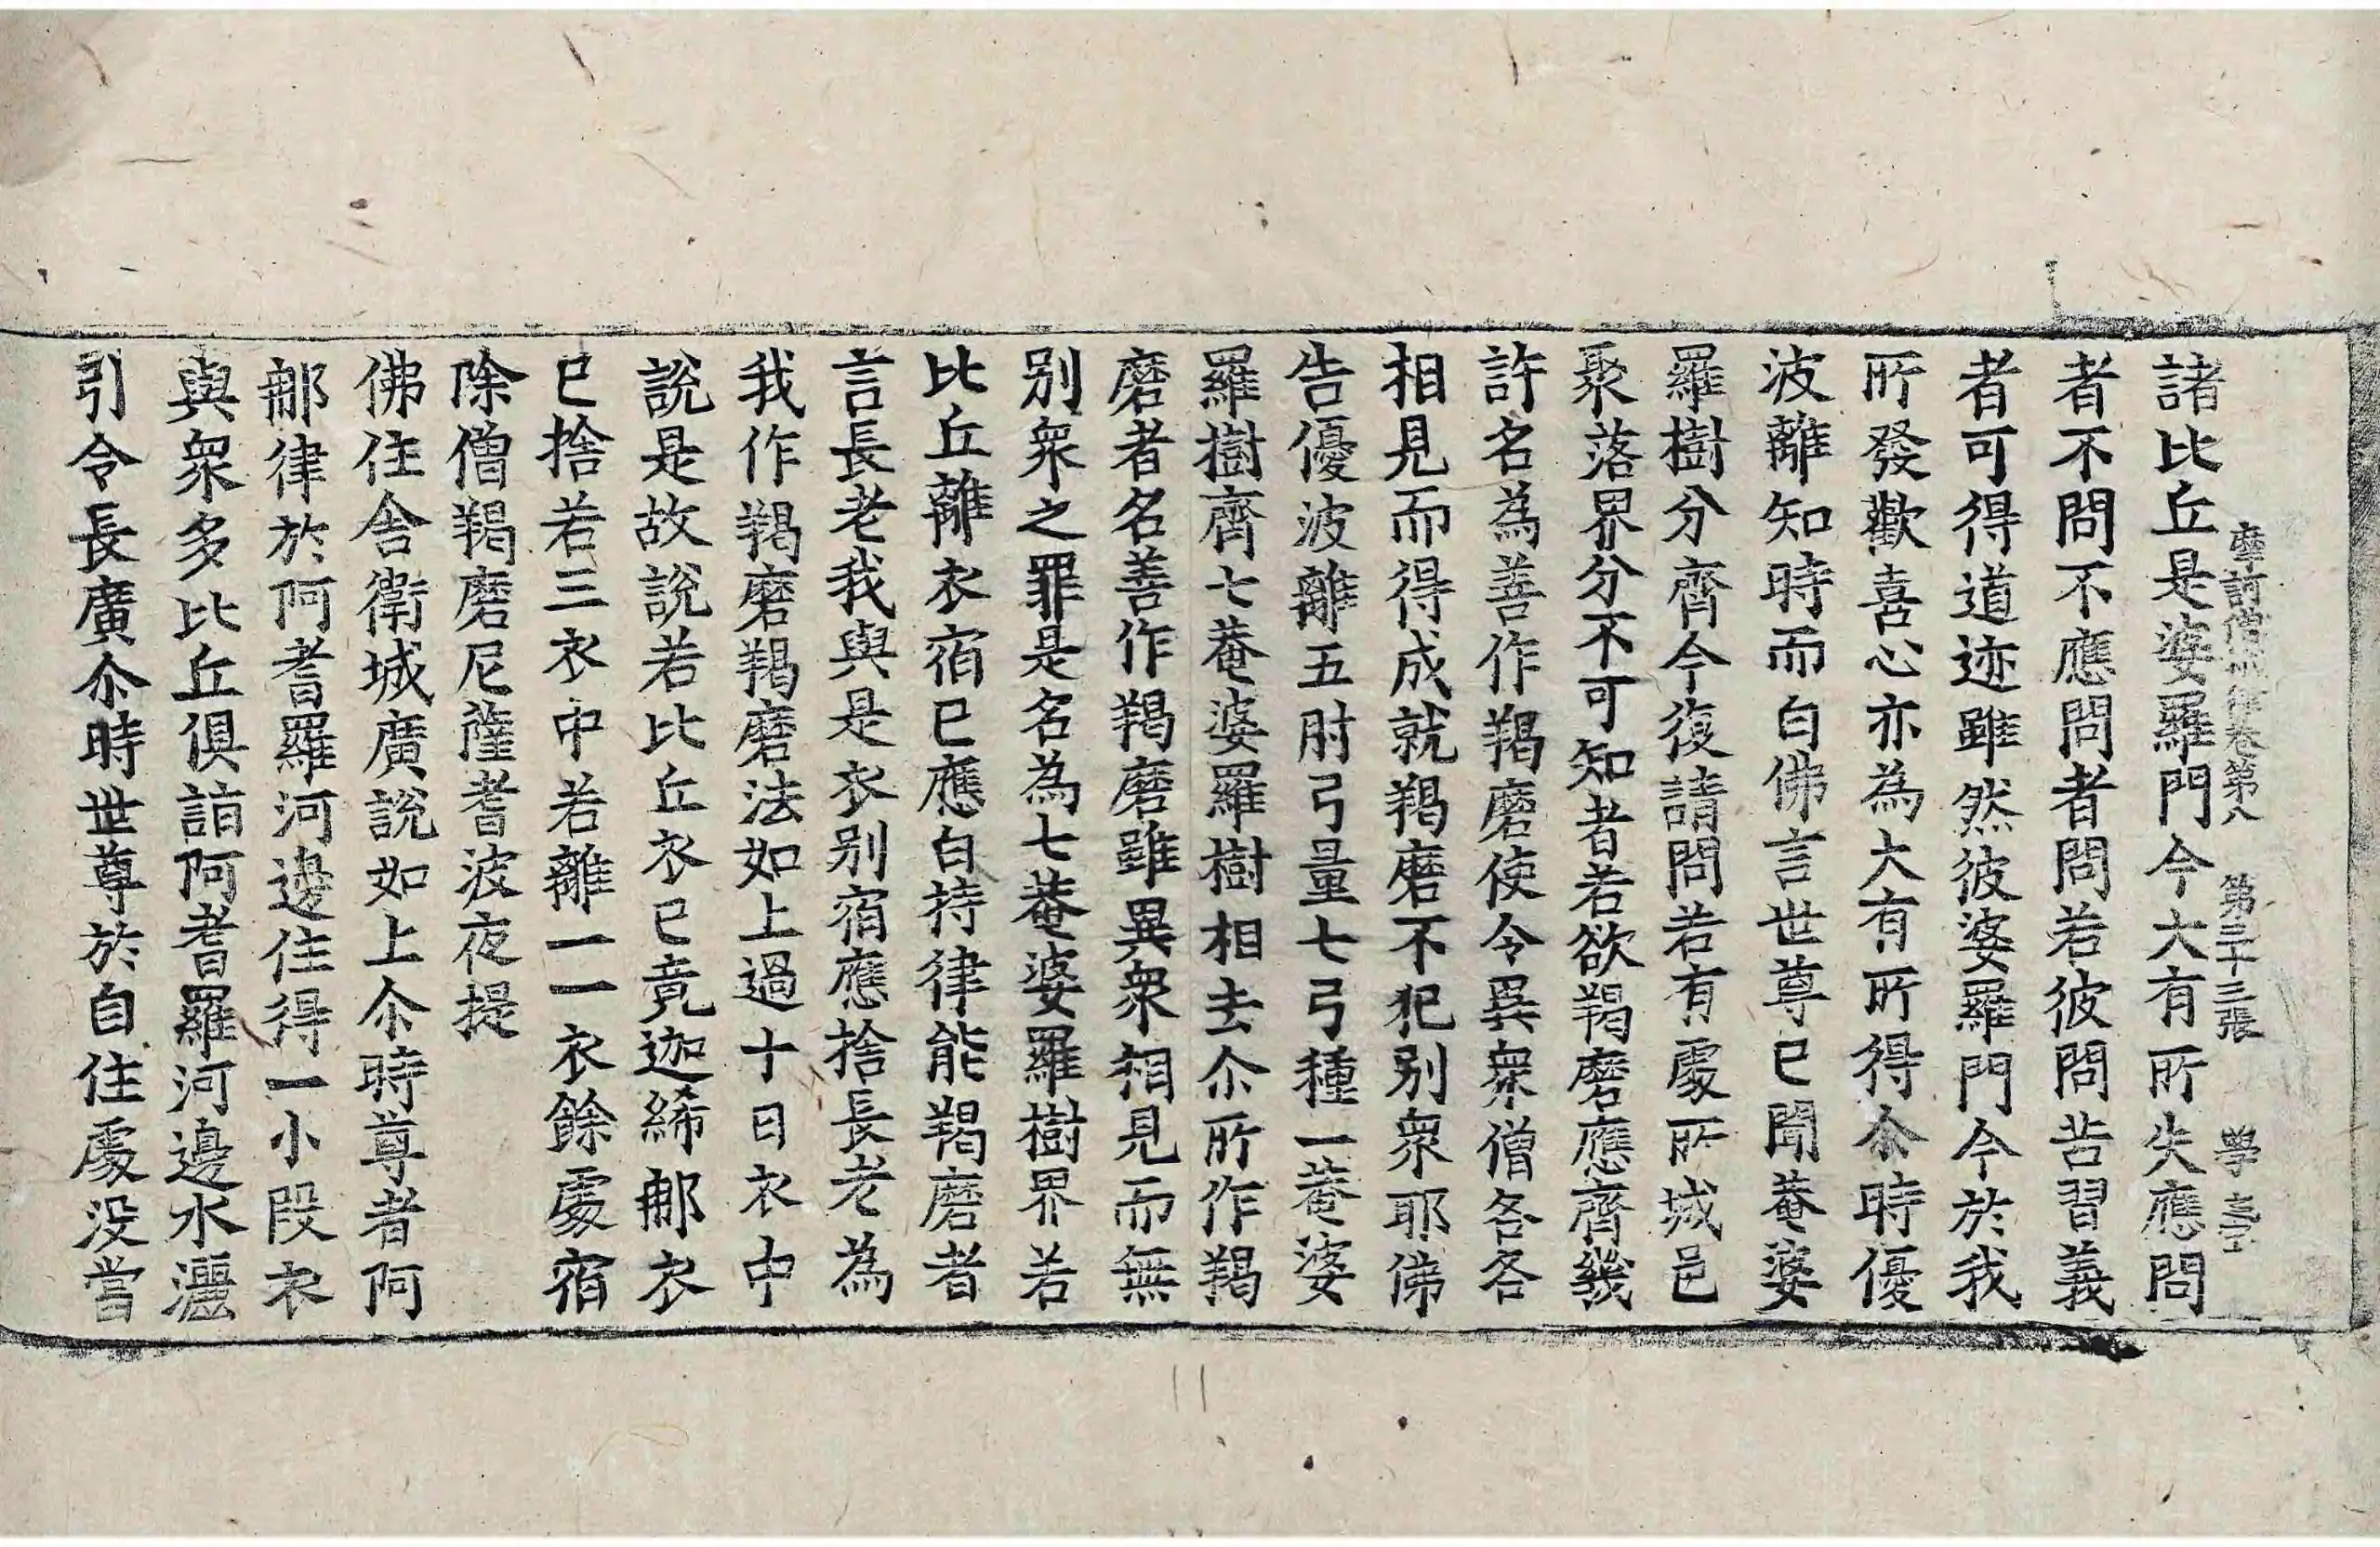 摩訶僧祇律卷第八　第三十三張　學
諸比丘是婆羅門今大有所失應問
者不問不應問者問若彼問苦習義
者可得道迹雖然彼婆羅門今於我
所發歡喜心亦為大有所得尒時優
波離知時而白佛言世尊已聞菴婆
羅樹分齊今復請問若有處所城邑
聚落界分不可知者若欲羯磨應齊幾
許名為善作羯磨使令異衆僧各各
相見而得成就羯磨不犯别衆耶佛
告優波離五肘弓量七弓種一菴婆
羅樹齊七菴婆羅樹相去尒所作羯
磨者名善作羯磨雖異衆相見而無
别衆之罪是名為七菴婆羅樹界若
比丘離衣宿已應白持律能羯磨者
言長老我與是衣别宿應捨長老為
我作羯磨羯磨法如上過十日衣中
說是故說若比丘衣已竟迦絺郍衣
已捨若三衣中若離一一衣餘處宿
除僧羯磨尼薩耆波夜提
佛住舍衛城廣說如上尒時尊者阿
郍律於阿耆羅河邊住得一小段衣
與衆多比丘俱詣阿耆羅河邊水灑
引令長廣尒時世尊於自住處没當